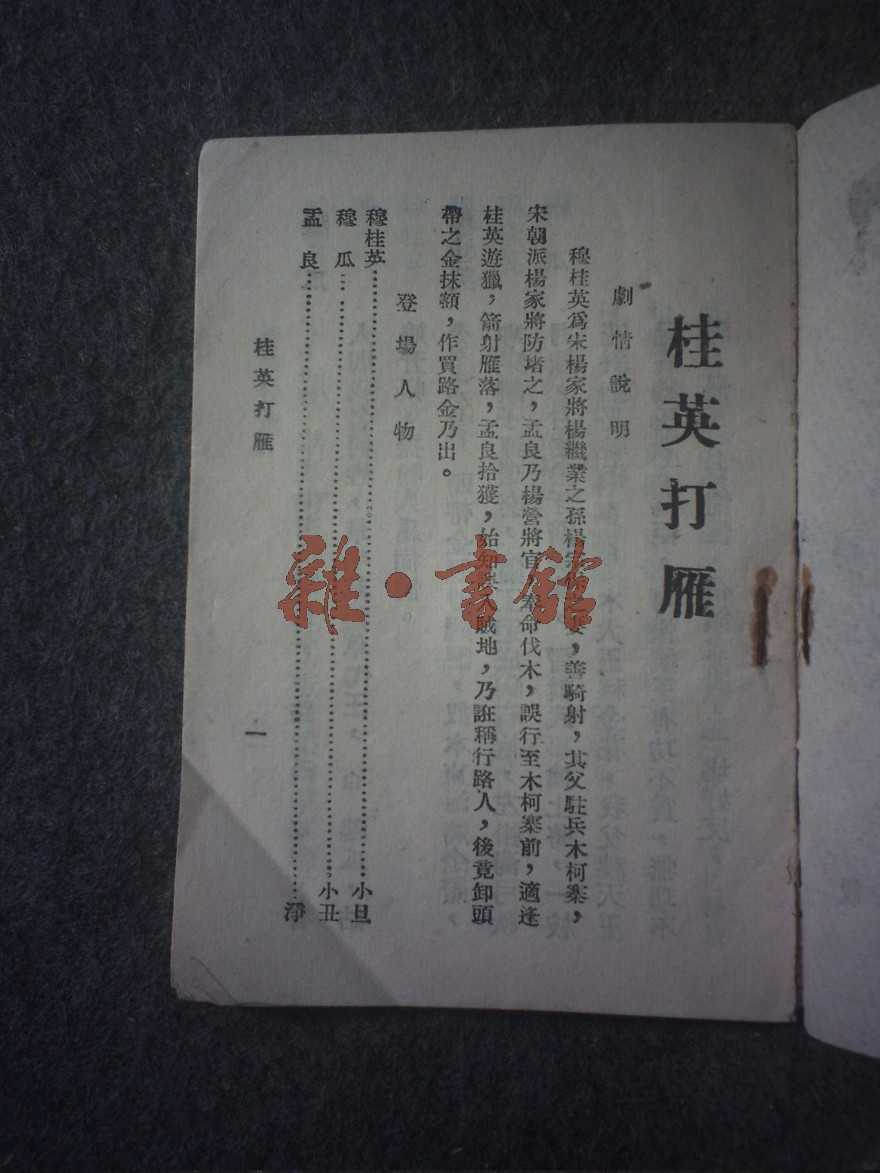 桂英打雁
劇情說明
穆桂英爲宋楊家將楊繼業之孫楊宗妻，善騎射，其父駐兵木柯寨，
宋朝派楊家將防堵之，孟良乃楊營將官奉命伐木，誤行至木柯寨前，適逢
桂英遊獵，箭射雁落，孟良拾獲，始知賊地，乃誑稱行路人，後竟卸頭
帶之金抹額，作買路金乃出。
登場人物
穆桂英……小旦
穆瓜……小丑
孟良……淨
桂英打雁
一
雜·書館